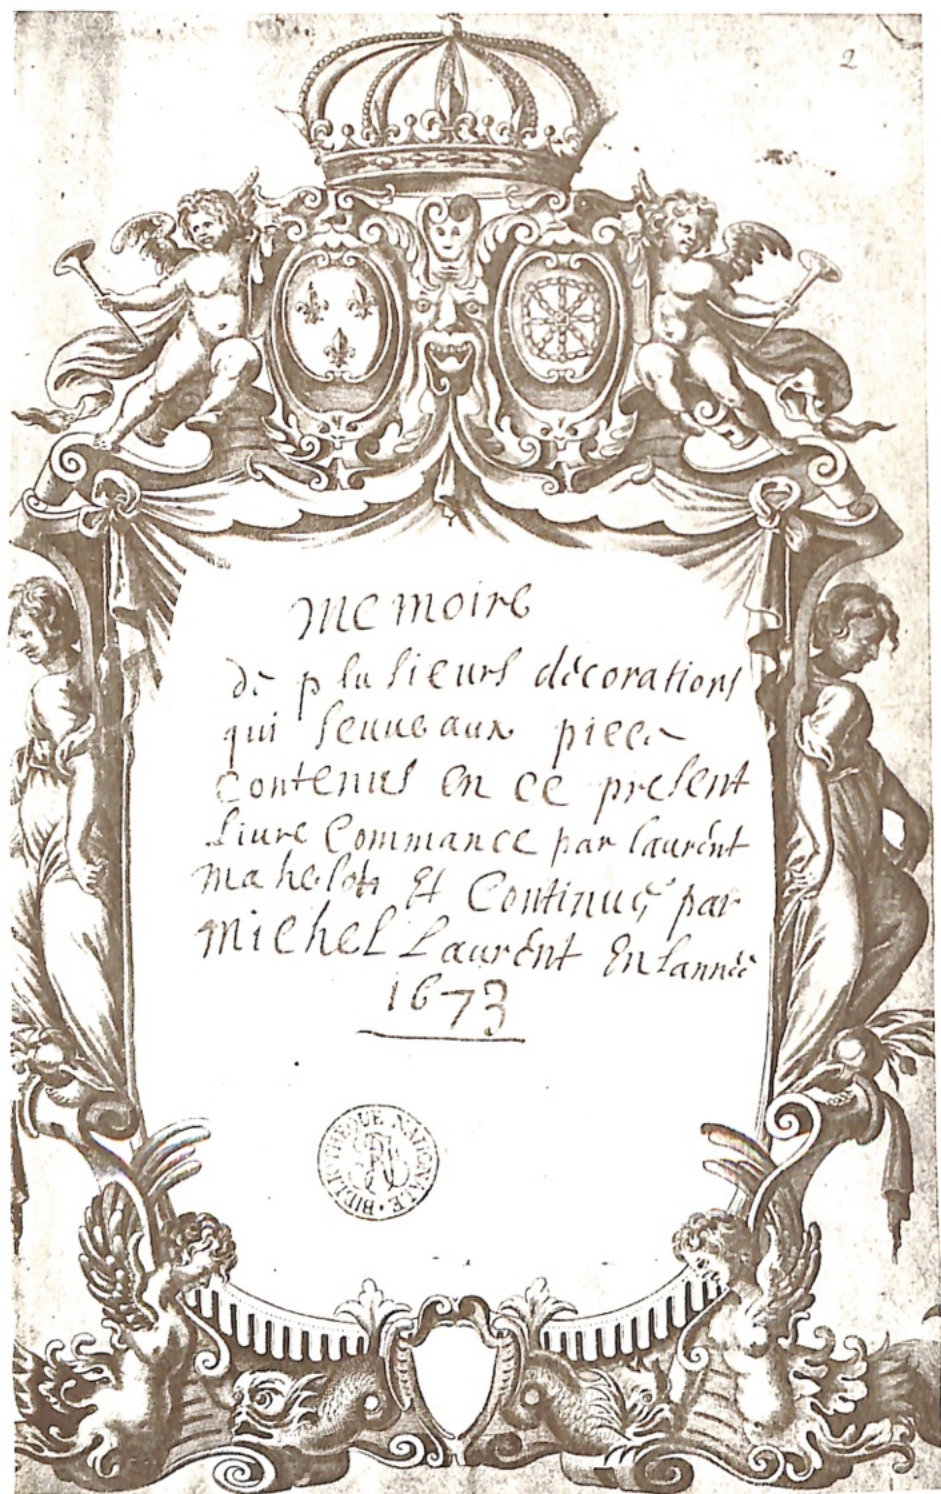 2
Memoire
de plusieurs décorations
qui serue aux pieces
Contenus en ce present
Liure Commance par laurent
mahelot Et Continué par
Michel Laurent En lannée
1673
BIBLIOTHEQUE NATIONALE